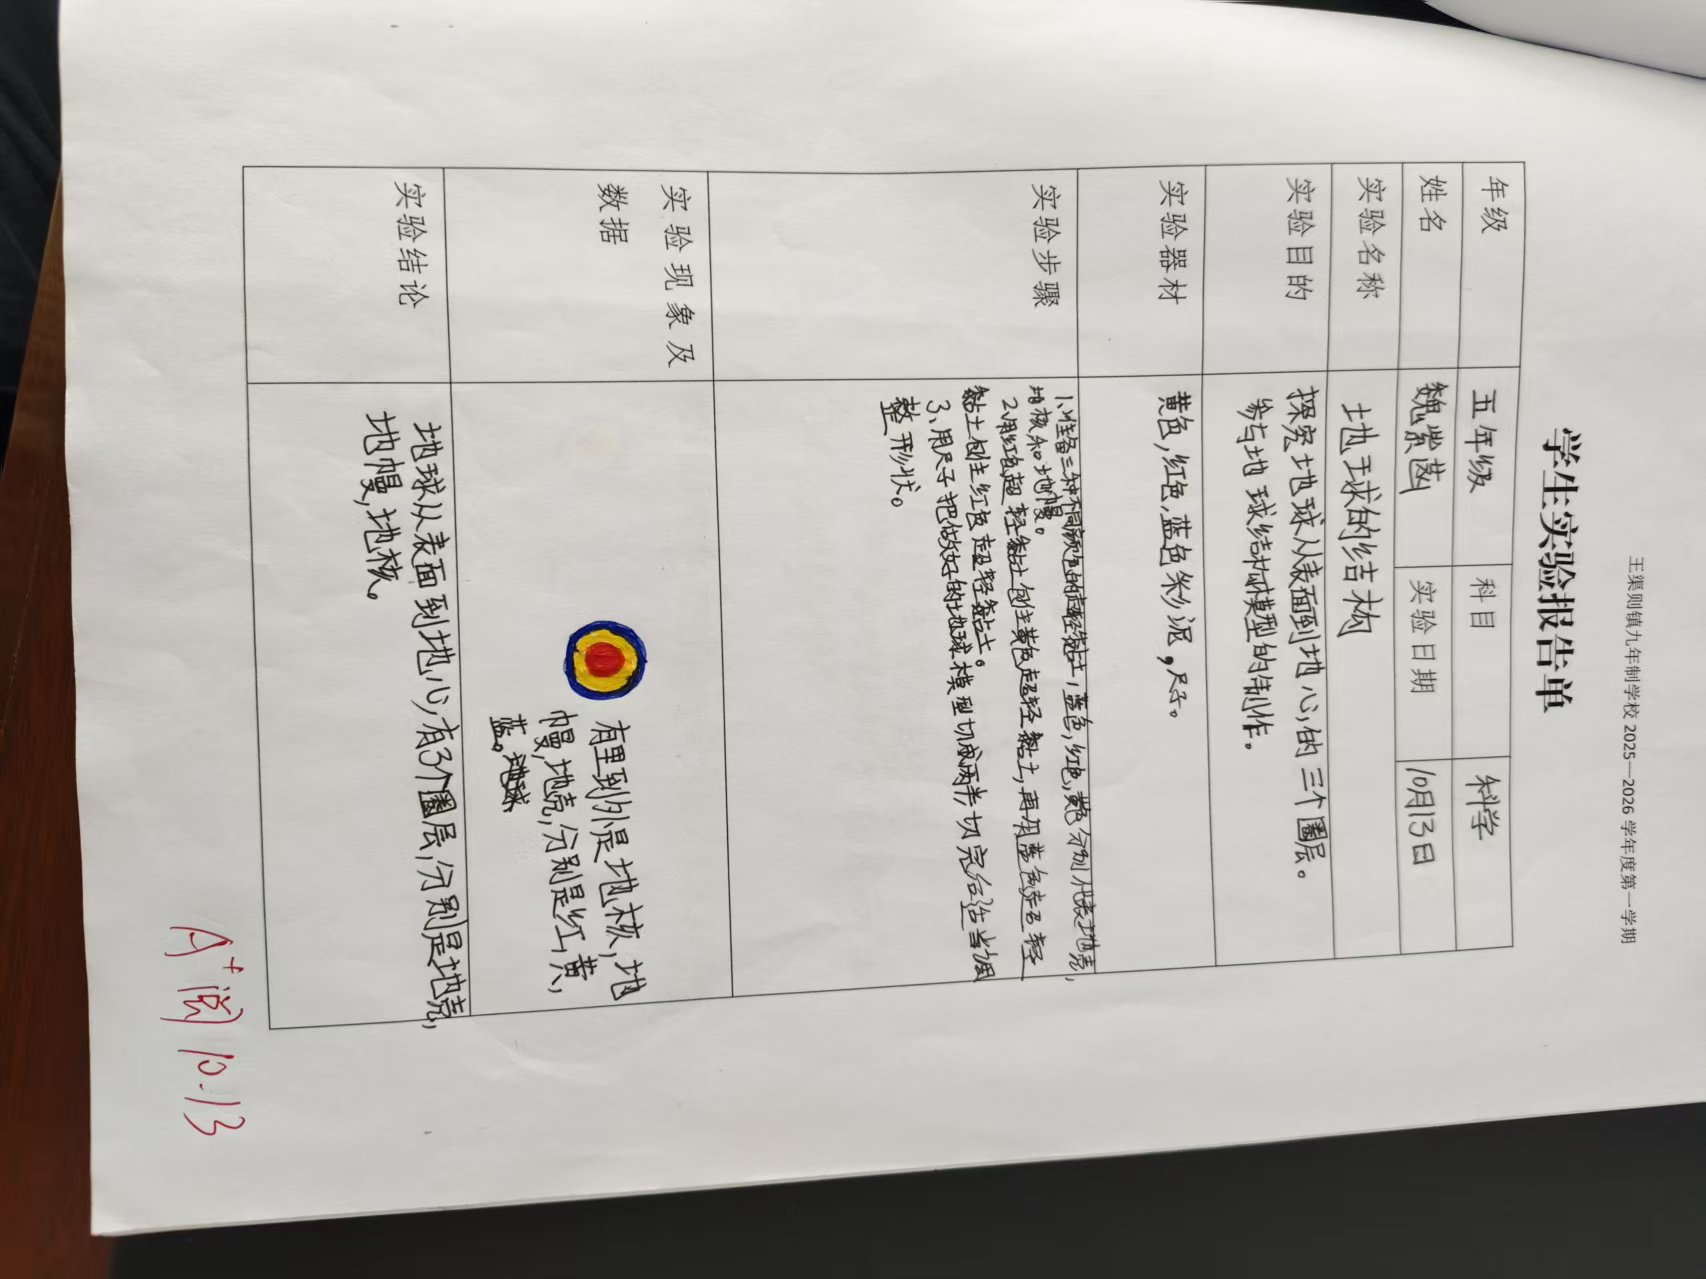 王渠则镇九年制学校 2025—2026 学年度第一学期
学生实验报告单
年级 五年级 科目 科学
姓名 魏紫菡 实验日期 10月13日
实验名称 地球的结构
实验目的 探究地球从表面到地心的三个圈层。
参与地球结构模型的制作。
实验器材 黄色,红色,蓝色彩泥,尺子。
实验步骤
1、准备三种不同颜色的超轻黏土,蓝色,红色,黄色分别代表地壳,
地核和地幔。
2、用红色超轻黏土包住黄色超轻黏土,再用蓝色超轻
黏土包住红色超轻黏土。
3、用尺子把做好的地球模型切成两半,切完后适当调
整形状。
实验现象及
数据
有里到外是地核,地
幔,地壳,分别是红,黄,
蓝。
实验结论
地球从表面到地心有3个圈层,分别是地壳,
地幔,地核。
A+ 阅 10.13